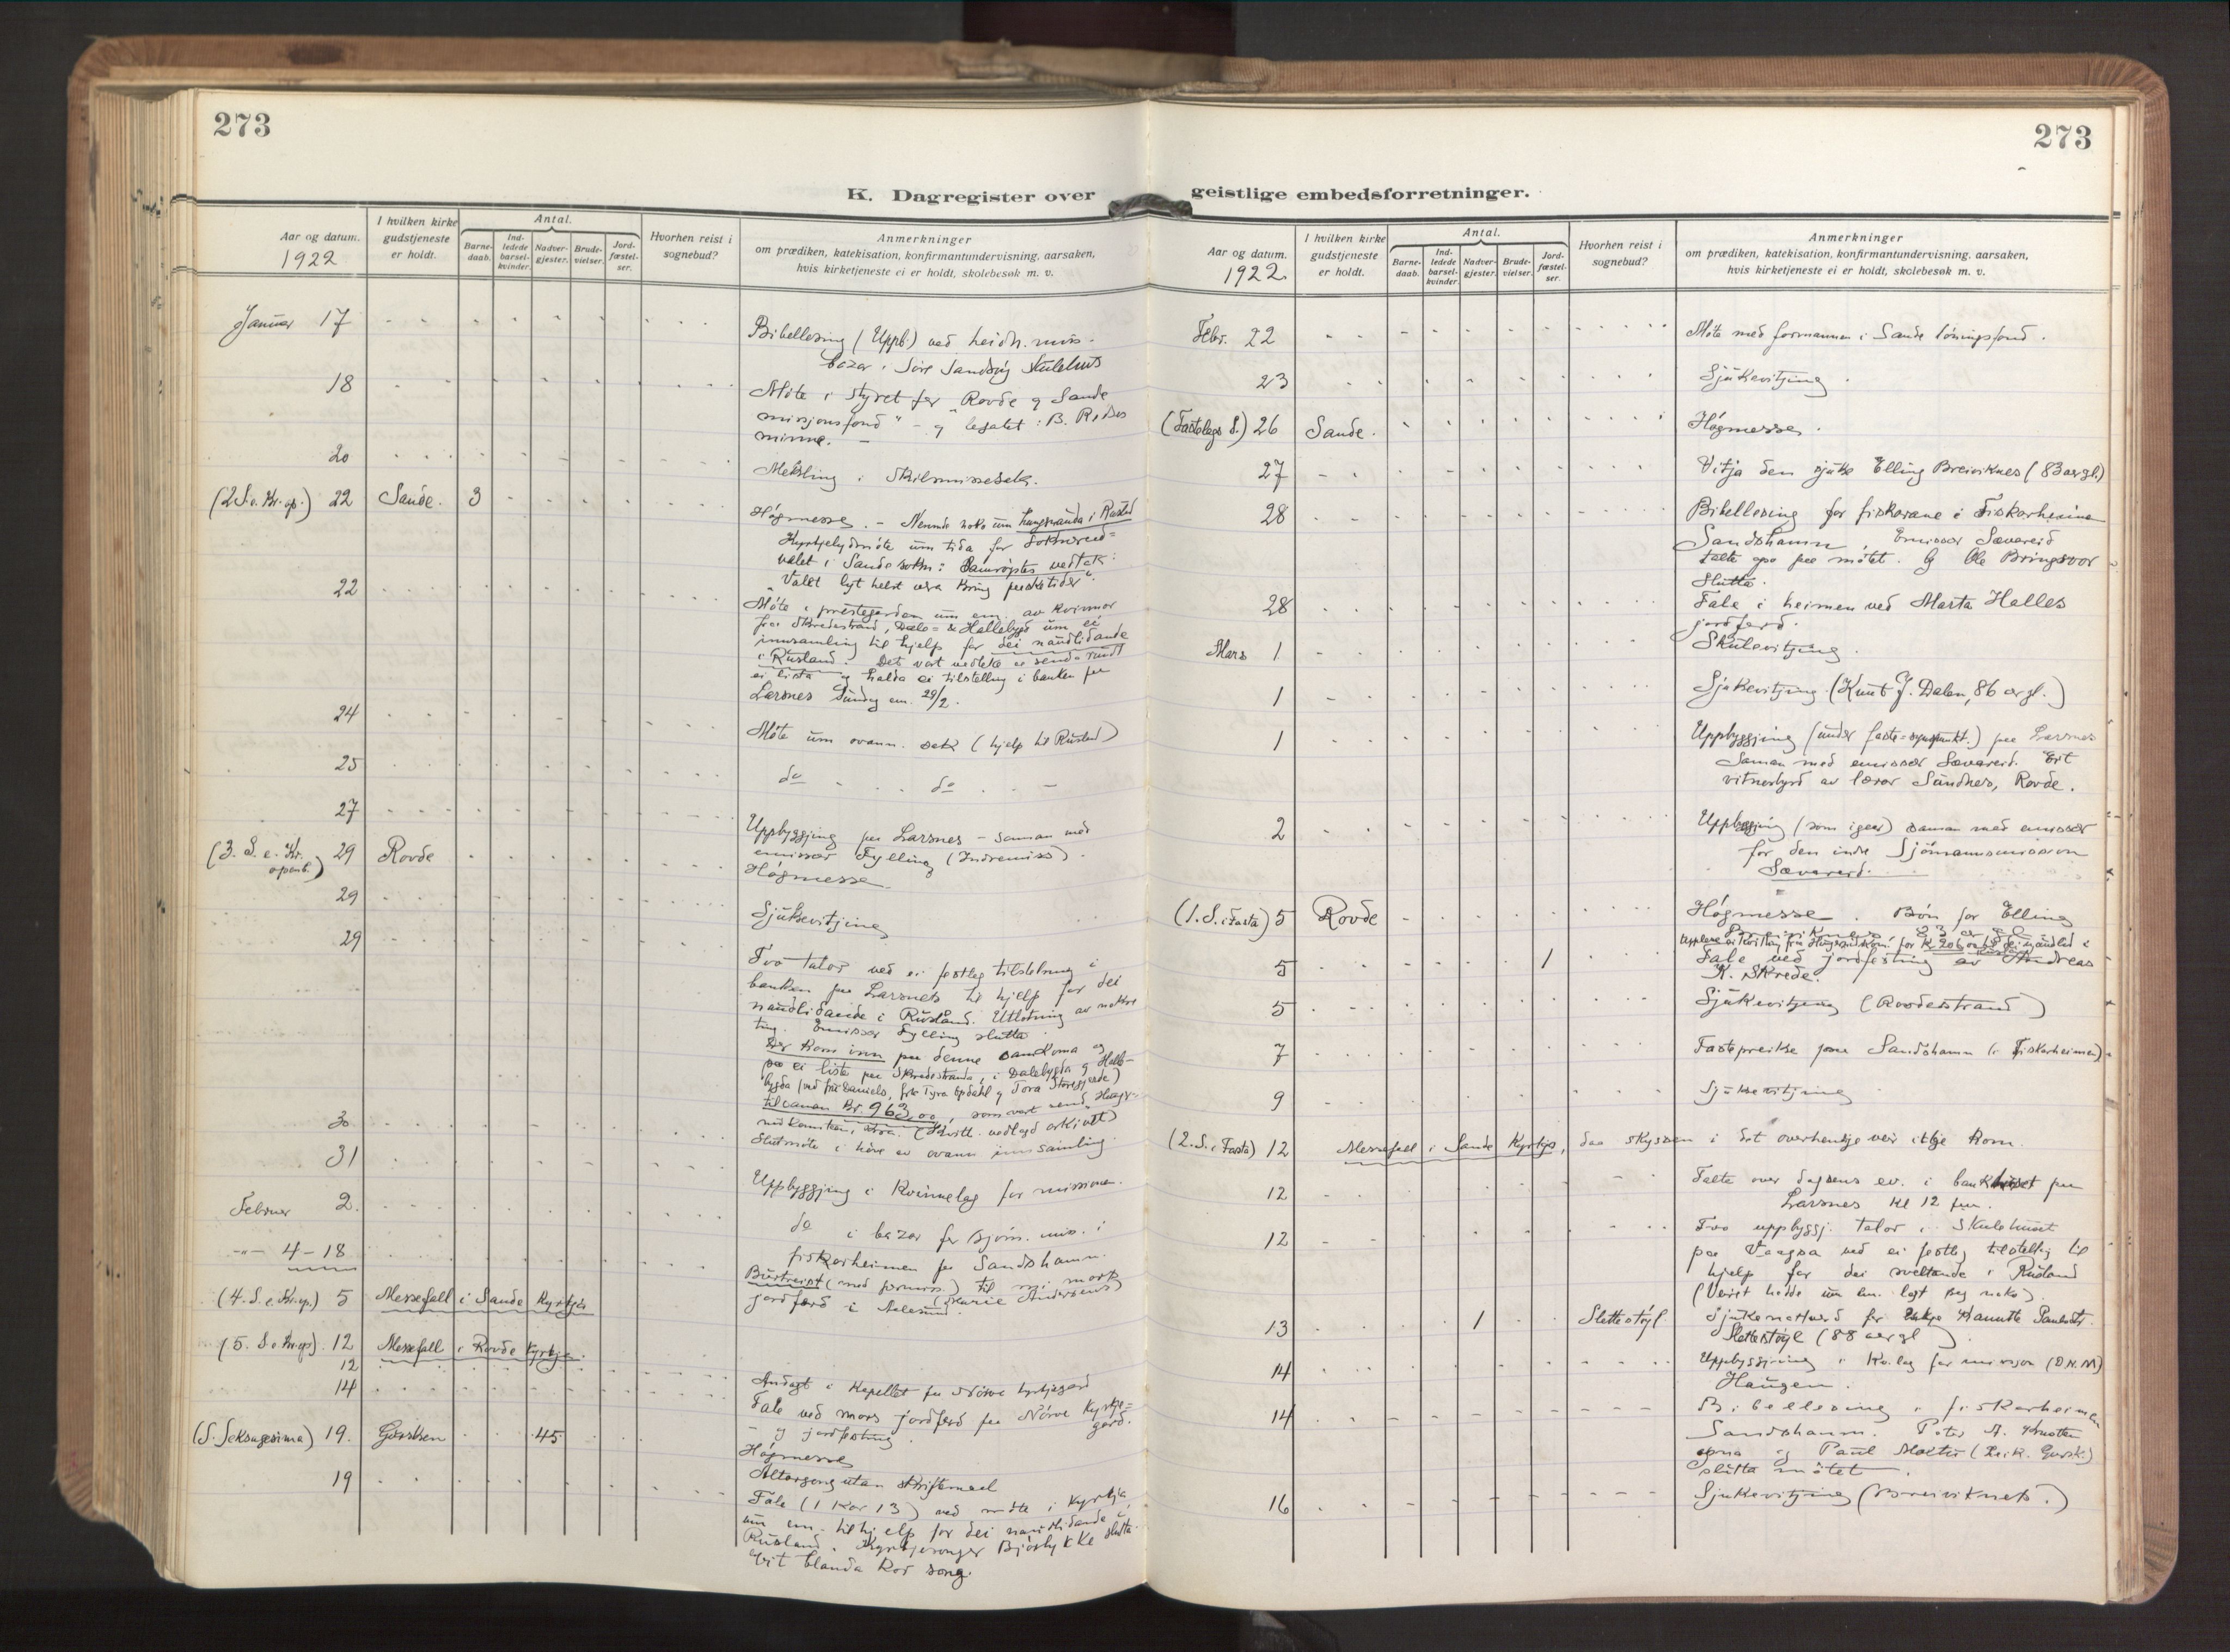 273
273
K. Dagregister over geistlige embedsforretninger.
Aar og datum.
1922
I hvilken kirke gudstjeneste er holdt.
Antal.
Barne-daab.
Ind-ledede barsel-kvinder.
Nadver-gjester.
Brude-vielser.
Jord-fæstel-ser.
Hvorhen reist i sognebud?
Anmerkninger
om prædiken, katekisation, konfirmantundervisning, aarsaken,
hvis kirketjeneste ei er holdt, skolebesøk m. v.
Januar 17
Bibellesing (Uppb.) ved heidn. mis-
bazar i Søre Sandvig Skulehus
18
Møte i styret for "Rovde og Sande
misjonsfond" - og legatet: B. Riises
minne. -
20
Mekling i skilsmissesak.
(2. S. e. Kr. op.) 22 Sande. 3
Høgmesse. - Nemnde noko um hungrsnauda i Rusland
Kyrkjelydsmøte um tida for sokneraad=
valet i Sande sokn: Samrøystes vedtak:
"Valet lyt helst vera kring pinsktider".
22
Møte i prestegarden um em. av kvinnor
fraa Skredestrand, Dale= & Hallebygd um ei
innsamling til hjelp for dei naudlidande
i Rusland. Det vart vedteke aa senda rundt
ei lista og halda ei tilstelling i banken paa
Larsnes Sundag em. 29/2.
24
Møte um ovann. sak (hjelp til Rusland)
25
do - . . do . . -
27
Uppbyggjing paa Larsnes - saman med
emissær Fylling (Indremis.).
(3. S. e. Kr. openb.) 29 Rovde
Høgmesse.
29
Sjukevitjing
29
Tvo talor ved ei festleg tilstelning i
banken paa Larsnes til hjelp for dei
naudlidande i Rusland. Utlotning av nokre
ting. Emissær Fylling slutta.
Der kom inn paa denne samkoma og
paa ei liste paa Skredestranda, i Dalebygda og Halle-
bygda (ved fru Daniels, frk Tyra Opdahl og Tora Storegjerde)
tilsaman Kr. 963,00, som vart send "Hungr-
30
Slutmøte i høve av ovann innsamling.
31
Uppbyggjing i Kvinnelag for missionen.
Februar 2.
do i bazar for sjøm. mis. i
fiskarheimen paa Sandshamn.
-"- 4-18
Burtreist (med permiss.) til mi mors
jordferd i Aalesund. (Marie Andersens)
(4. S. e. Kr. op.) 5 Messefall i Sande Kyrkje
(5. S. e. Kr. op.) 12 Messefall i Rovde Kyrkje.
12
Andagt i Kapellet paa Nørve kyrkjegard
14
Tale ved mors jordferd paa Nørve Kyrkje=
gard.
- og jordfesting
(S. Seksagesima) 19. Gursken 45
Høgmesse
Altargang utan skriftemaal
19
Tale (1 Kor 13) ved møte i Kyrkja
um em. til hjelp for dei naudlidande i
Rusland. Kyrkjesongar Bjørlykke slutta.
Eit blanda kor song.
Aar og datum.
1922.
I hvilken kirke gudstjeneste er holdt.
Antal.
Barne-daab.
Ind-ledede barsel-kvinder.
Nadver-gjester.
Brude-vielser.
Jord-fæstel-ser.
Hvorhen reist i sognebud?
Anmerkninger
om prædiken, katekisation, konfirmantundervisning, aarsaken,
hvis kirketjeneste ei er holdt, skolebesøk m. v.
Febr. 22
Møte med formannen i Sande løningsfond.
23
Sjukevitjing.
(Fastelags S.) 26 Sande.
Høgmesse.
27
Vitja den sjuke Elling Breiviknes (83 aar gl.)
28
Bibellesing for fiskarane i Fiskarheimen
Sandshamn. Emissær Sævareid
talte ogso paa møtet. Og Ole Bringsvor
slutta.
28
Tale i heimen ved Marta Halles
jordferd.
Mars 1
Skulevitjing.
1
Sjukevitjing. (Knut J. Dalen, 86 aar gl.)
1
Uppbyggjing (under faste=synspunkt.) paa Larsnes
saman med emissær Sævareid. Eit
vitnesbyrd av lærar Sundnes, Rovde.
2
Uppbyggjing (som igaar) saman med emissær
for den indre Sjømannsmission
Sævareid.
(1. S. i Fasta) 5 Rovde
Høgmesse. Bøn for Elling
Breiviknes 83 aar gl.
5 1
Tale ved jordfesting av Andreas
K. Skrede.
5
Sjukevitjing (Rovdestrand)
7
Fastepreike paa Sandshamn (i Fiskarheimen)
9
Sjukevitjing
(2. S. i Fasta) 12 Messefall i Sande Kyrkje, daa skyssen i det overhendige veir ikkje kom.
12
Talte over dagsens ev. i bankhuset paa
Larsnes kl 12 fm.
12
Tvo uppbyggj. talor i Skulehuset
paa Vaagsa ved ei festleg tilstelling til
hjelp for dei sveltande i Rusland
(Veiret hadde um em. lagt seg noko).
13 1 Sletteståyl
Slettestøyl (88 aar gl)
14
Uppbyggjing i Kv.lag for mission (D.N.M)
Haugen.
14
Bibellesing i fiskarheimen
Sandshamn. Peter A. Knotten
opna og Paul Moltu (Leik. Gursk.)
slutta møtet.
16
Sjukevitjing (Breiviknes.)